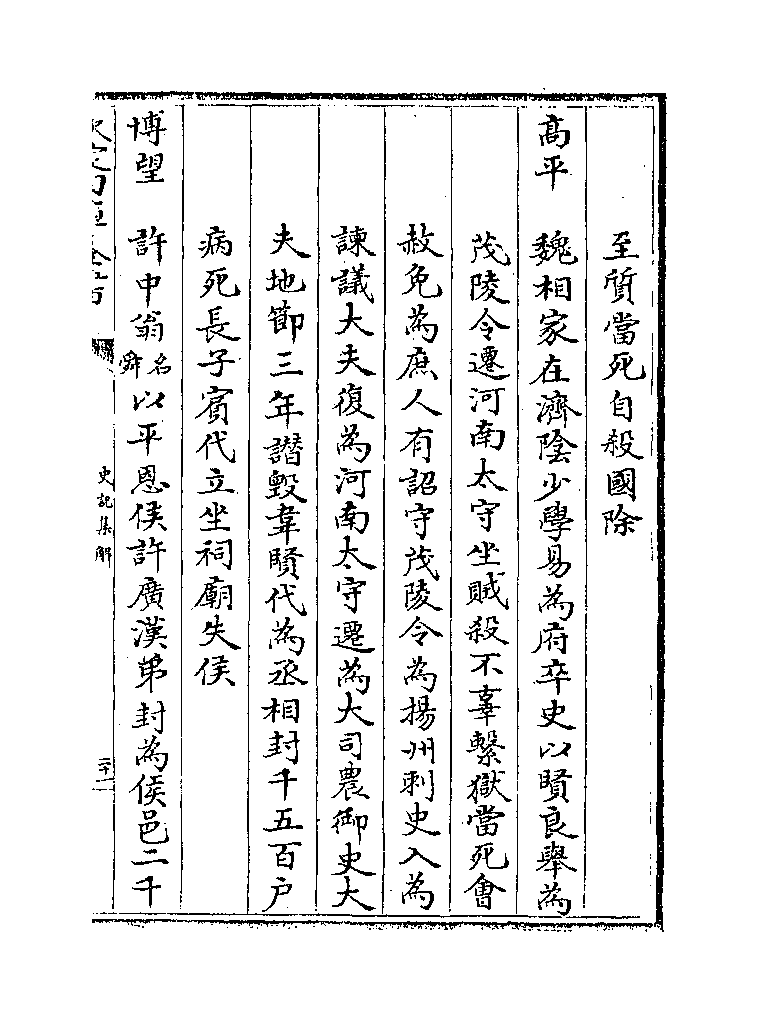 至質當死自殺國除
高平　魏相家在濟陰少學易為府卒史以賢良舉為
茂陵令遷河南太守坐賊殺不辜繫獄當死會
赦免為庶人有詔守茂陵令為揚州刺史入為
諫議大夫復為河南太守遷為大司農御史大
夫地節三年譖毀韋賢代為丞相封千五百户
病死長子賔代立坐祠廟失侯
博望　許中翁名舜以平恩侯許廣漢弟封為侯邑二千
史記集解